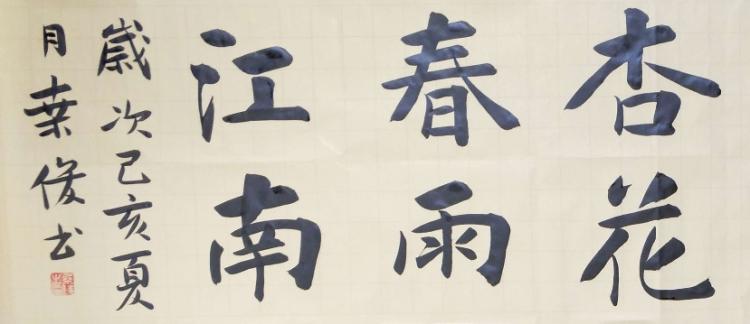 杏花
春雨
江南
歲次己亥夏
月俊书